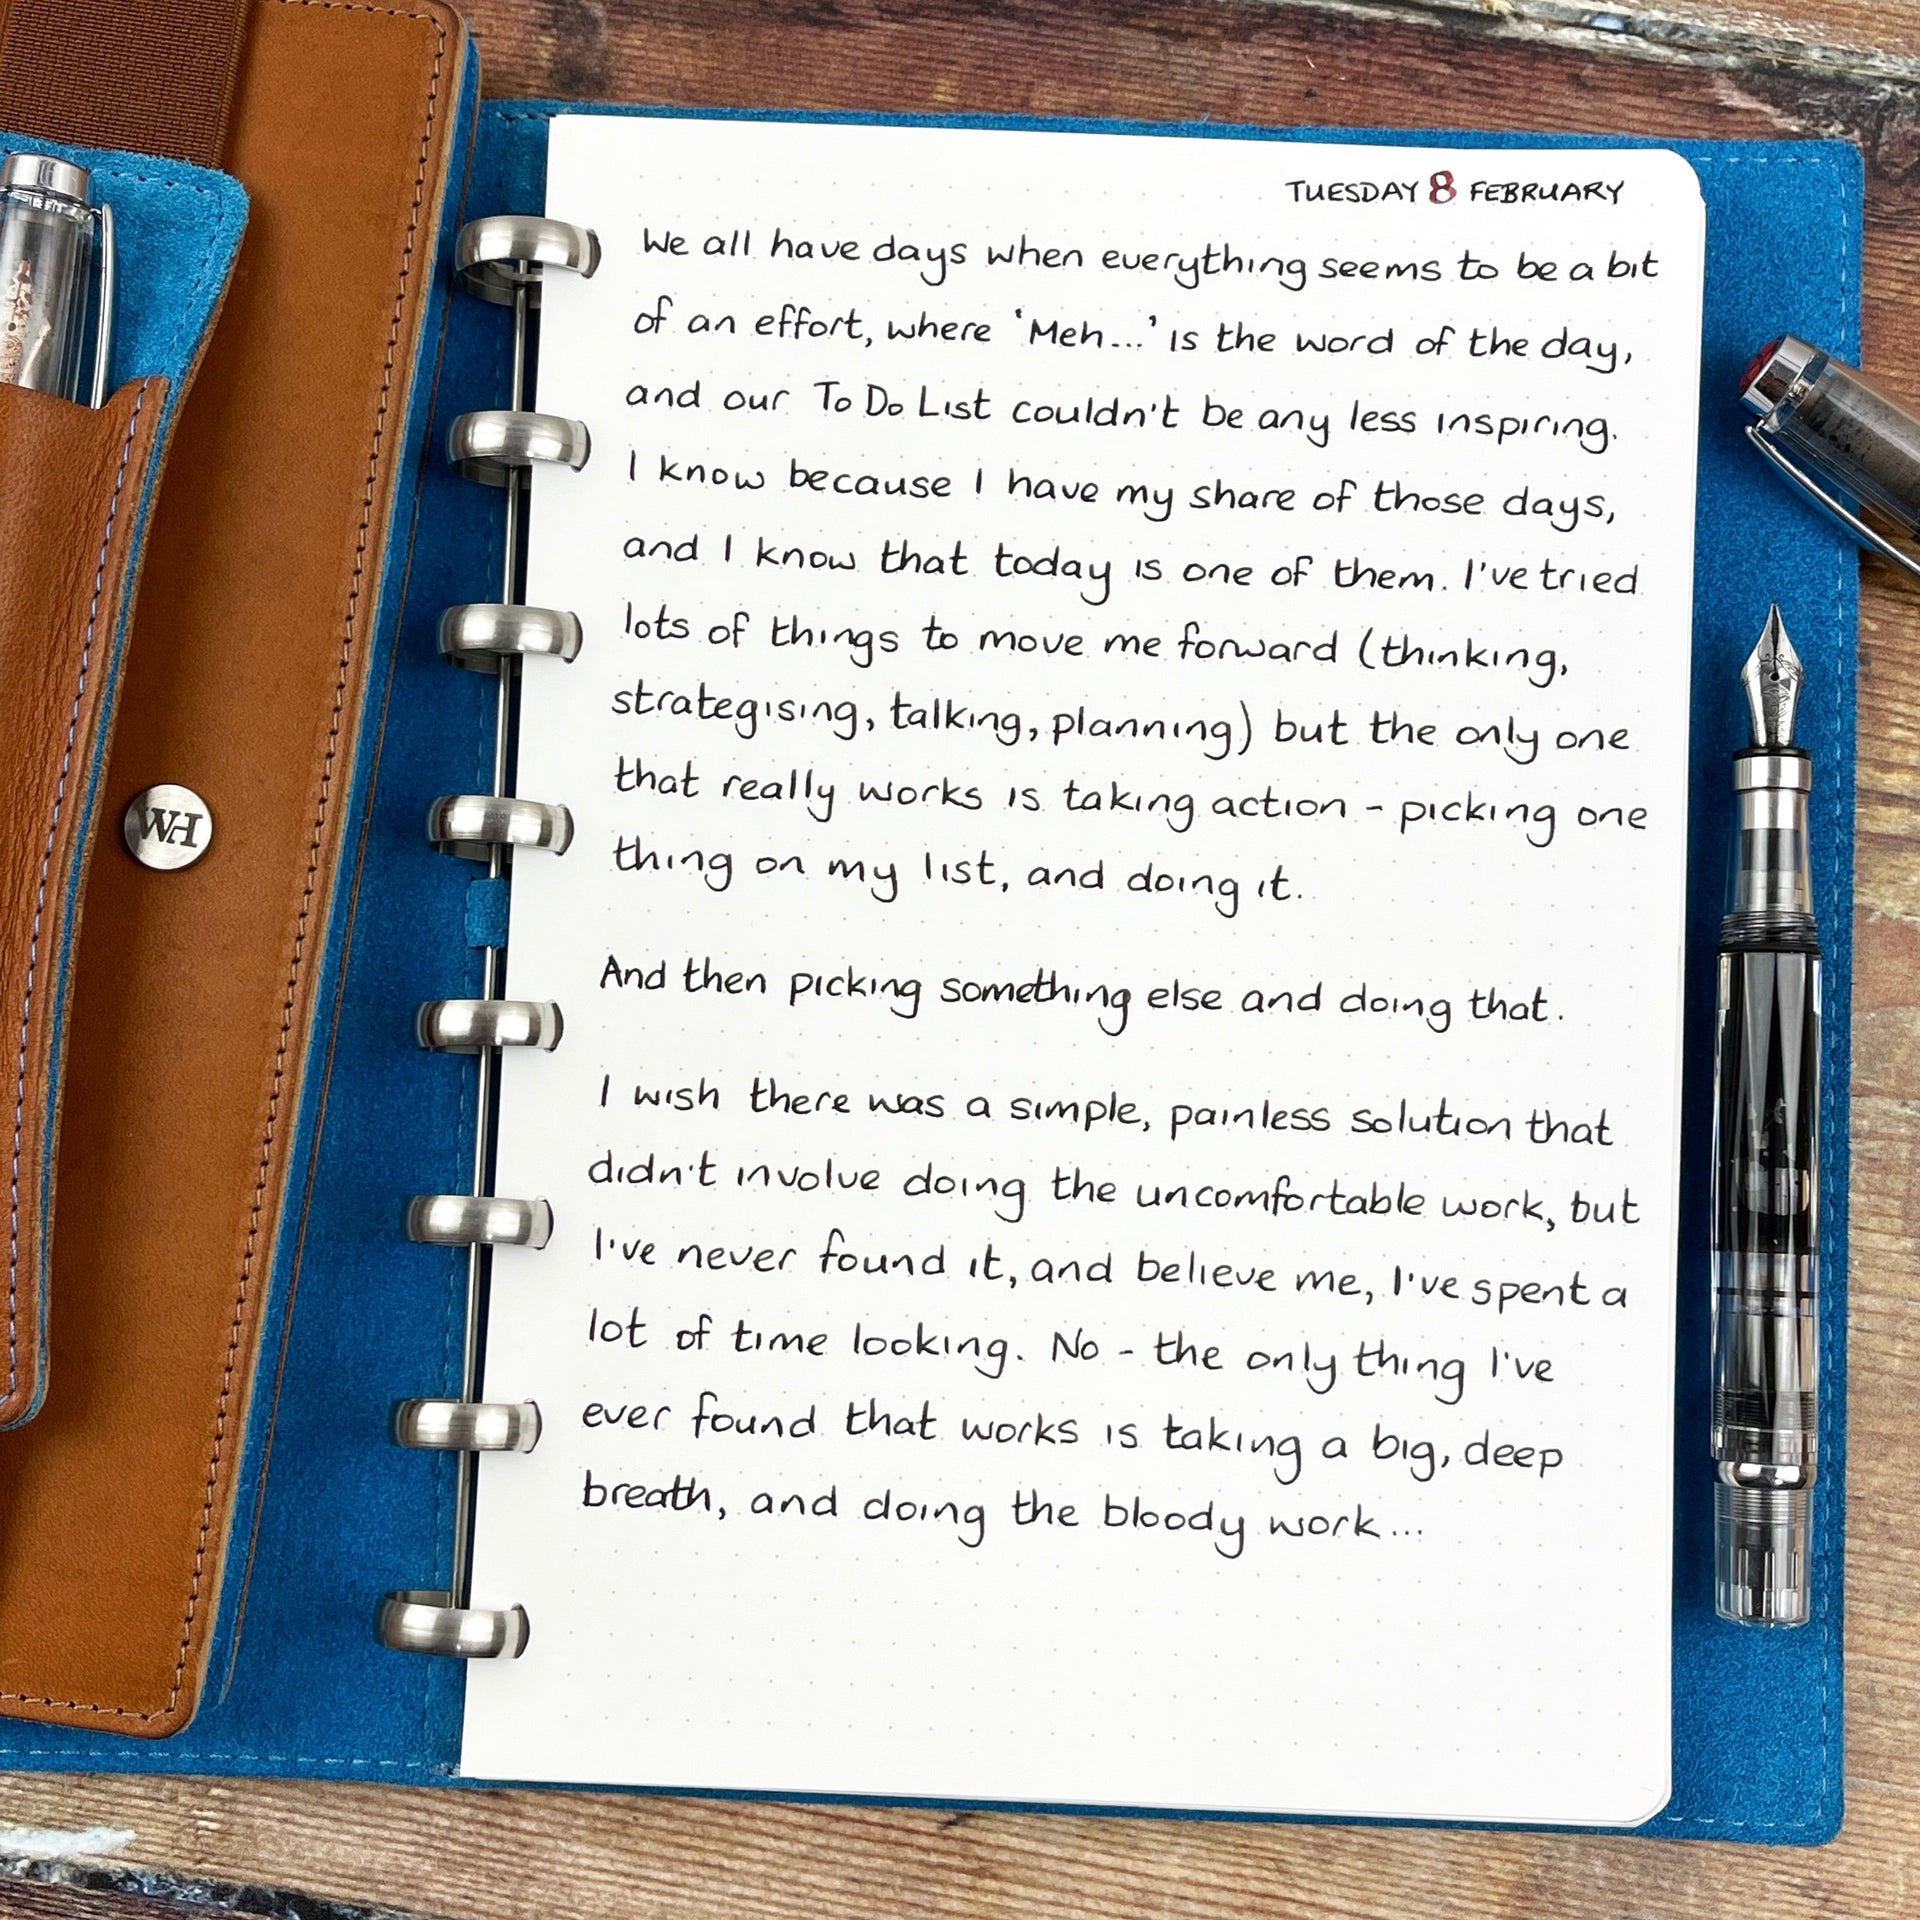 TUESDAY 8 FEBRUARY
We all have days when everything seems to be a bit
of an effort, where 'Meh...' is the word of the day,
and our To Do List couldn't be any less inspiring.
I know because I have my share of those days,
and I know that today is one of them. I've tried
lots of things to move me forward (thinking,
strategising, talking, planning) but the only one
that really works is taking action - picking one
thing on my list, and doing it.
And then picking something else and doing that.
I wish there was a simple, painless solution that
didn't involve doing the uncomfortable work, but
I've never found it, and believe me, I've spent a
lot of time looking. No - the only thing I've
ever found that works is taking a big, deep
breath, and doing the bloody work...
WH